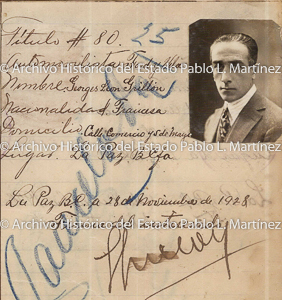 Título # 80. 25
Automovilista
Nombre Georges Leon Grillon
Nacionalidad Francesa
Domicilio, Calle Comercio y 5 de Mayo
Lugar. La Paz B.Cfa
© Archivo Histórico del Estado Pablo L. Martínez.
© Archivo Histórico del Estado Pablo L. Martínez.
La Paz B.C. a 28 de Noviembre de 1928
© Archivo Histórico del Estado Pablo L. Martínez.
Cancelado